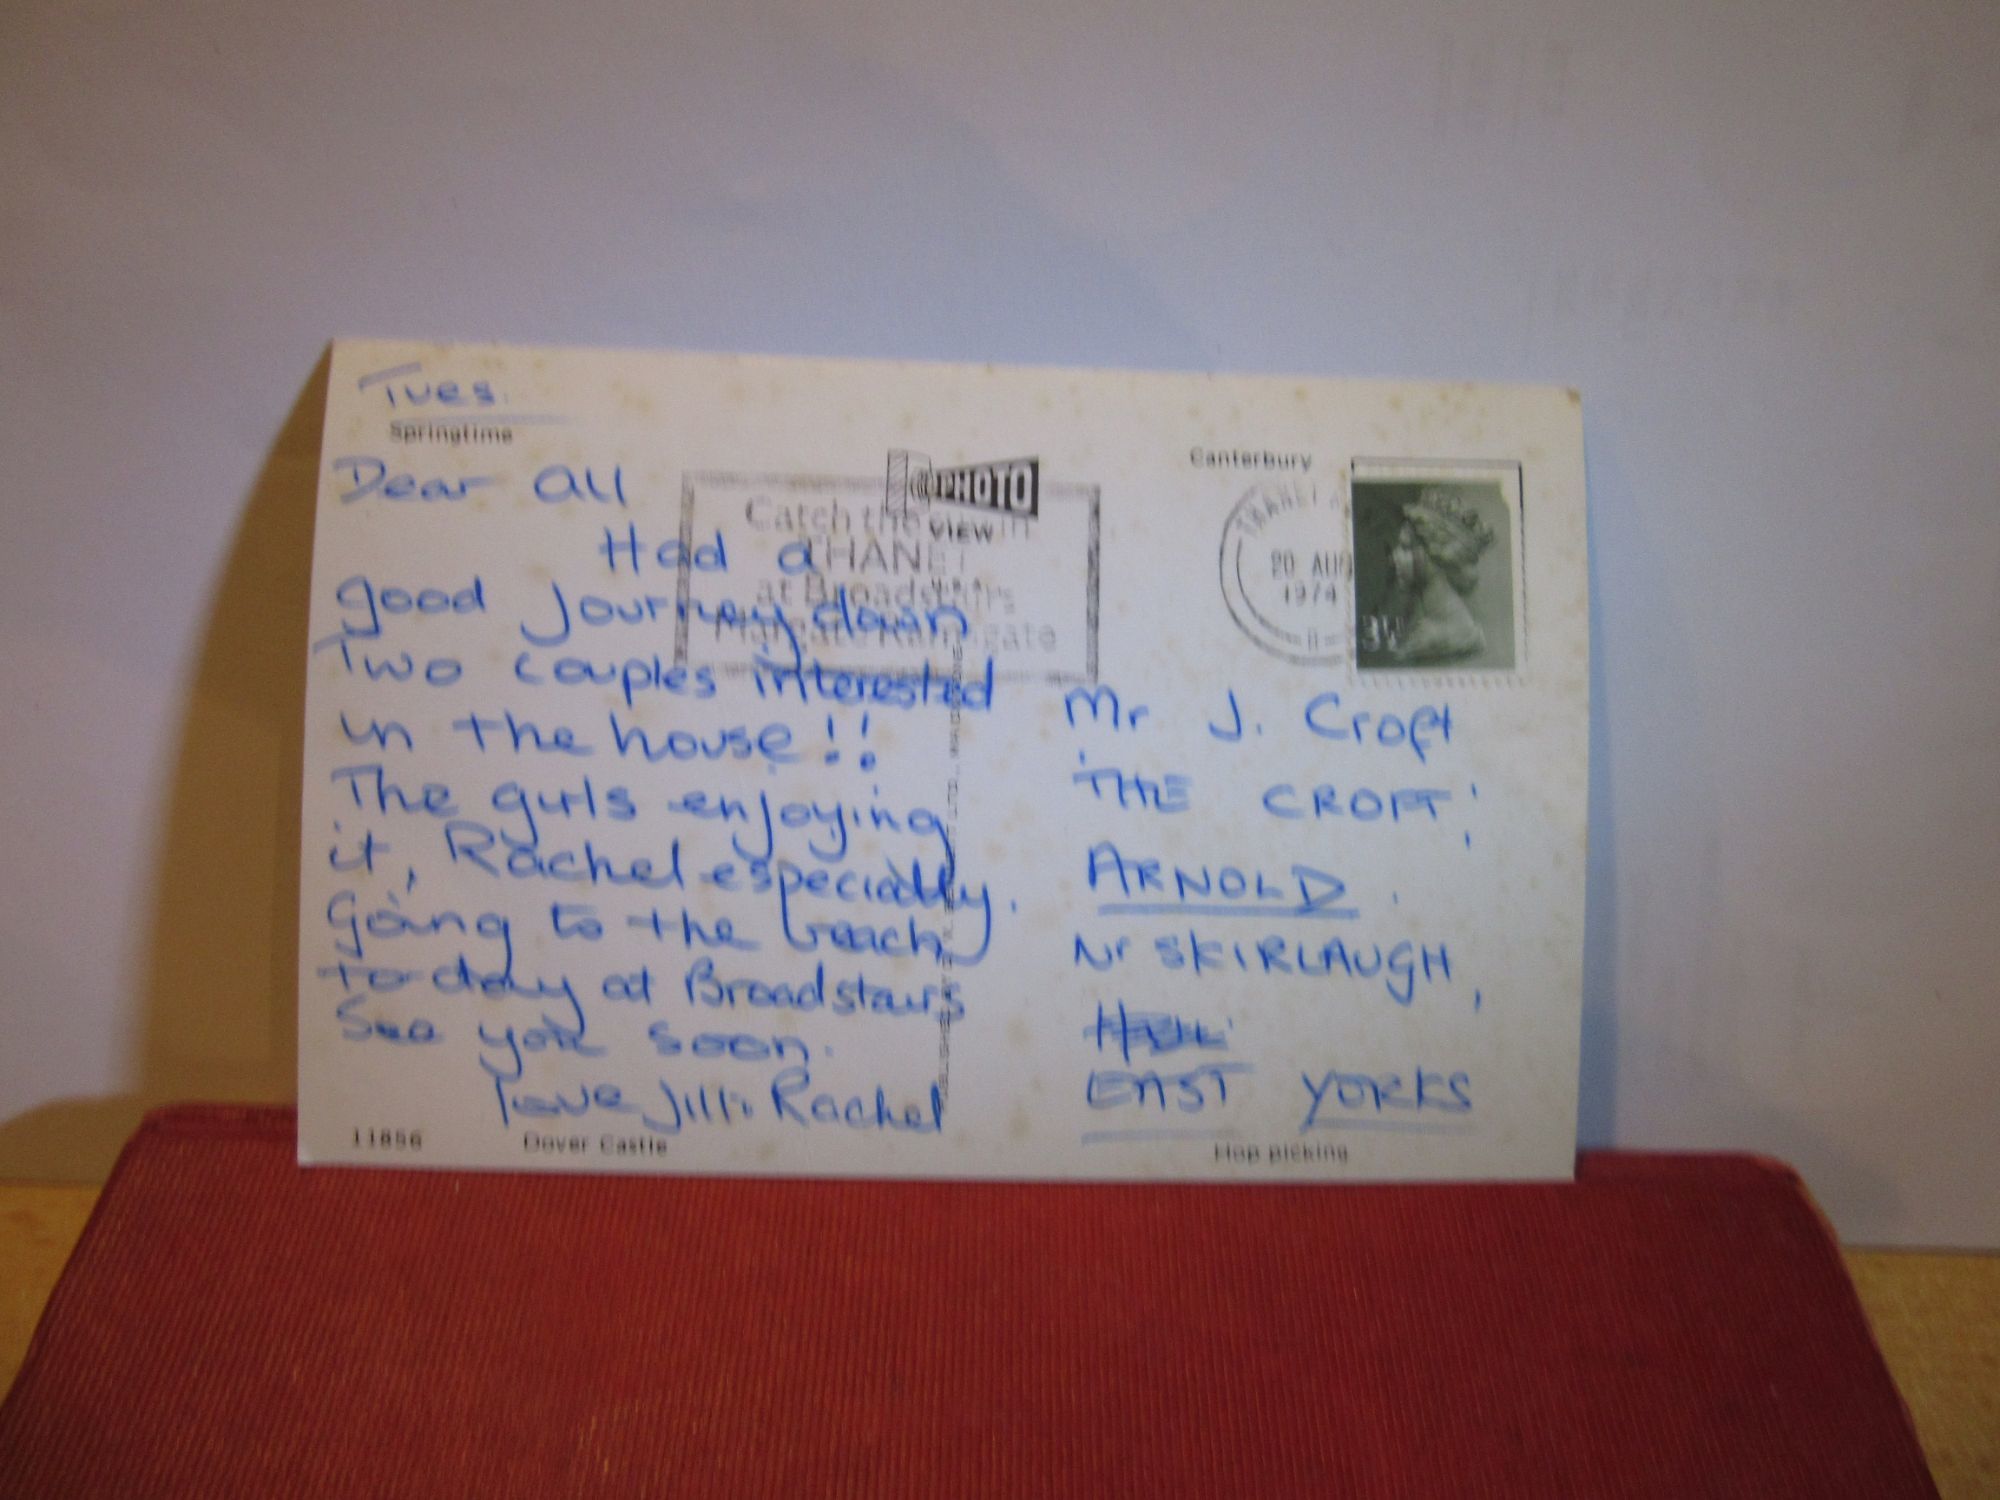 Tues.
Springtime
Dear All
Had a
good journey down
Two couples interested
in the house!!
The girls enjoying
it, Rachel especially.
Going to the beach
to-day at Broadstairs
See you soon.
Love Jill & Rachel
11856
Dover Castle
PHOTO
VIEW
Catch the
THANET
at Broadstairs
Margate Ramsgate
Canterbury
THANET
20 AUG
1974
Mr J. Croft
THE CROFT,
ARNOLD.
Nr SKIRLAUGH,
EAST YORKS
Hop picking